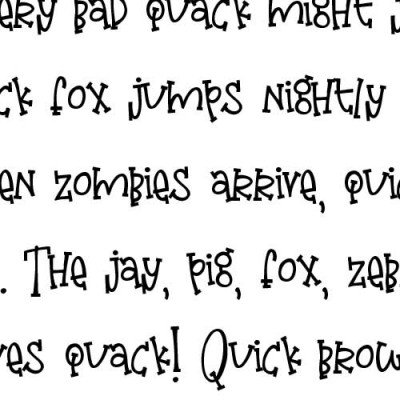 ery bad quack might j
ck fox jumps nightly
en zombies arrive, qui
. The jay, pig, fox, zeb
ves quack! Quick brow